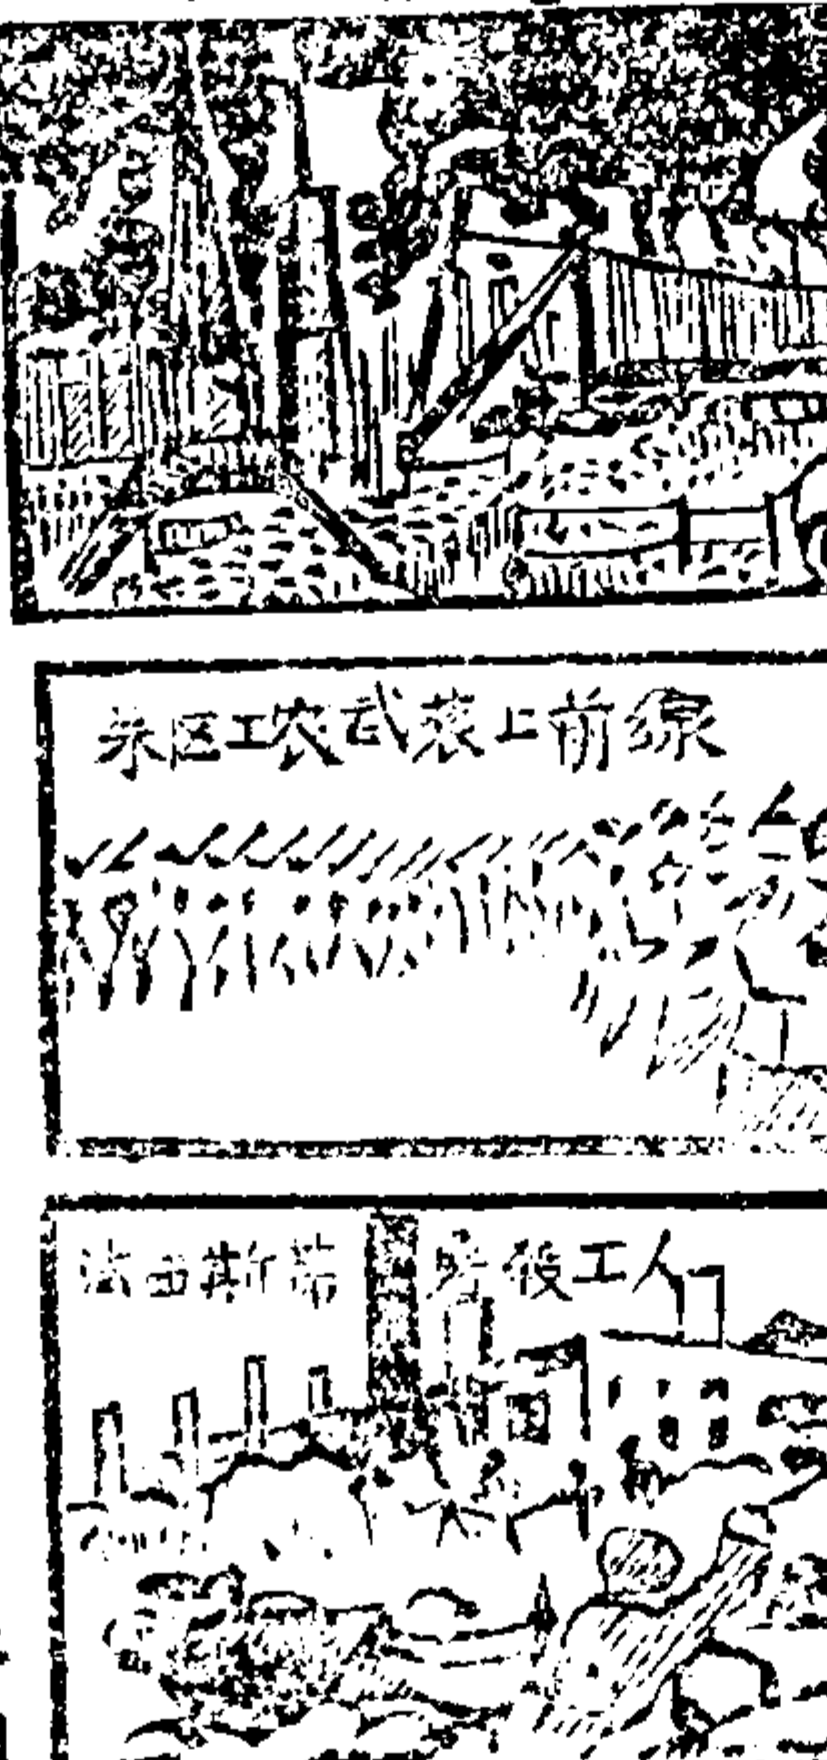 区工农武装上前線
法西斯蒂 役工人